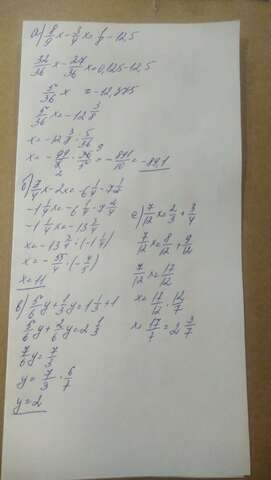 а) 8/9 x - 3/4 x = 1/8 - 12,5
32/36 x - 27/36 x = 0,125 - 12,5
5/36 x = -12,375
5/36 x = -12 3/8
x = -12 3/8 : 5/36
x = - 99/8 · 36/5 = - 891/10 = -89,1
б) 3/4 x - 2x = -6 1/4 - 7 1/2
-1 1/4 x = -6 1/4 - 7 2/4
-1 1/4 x = -13 3/4
x = -13 3/4 : (-1 1/4)
x = - 55/4 · (- 4/5)
x = 11
в) 5/6 y + 1/3 y = 1 1/3 + 1
5/6 y + 2/6 y = 2 1/3
7/6 y = 7/3
y = 7/3 · 6/7
y = 2
е) 7/12 x = 2/3 + 3/4
7/12 x = 8/12 + 9/12
7/12 x = 17/12
x = 17/12 · 12/7
x = 17/7 = 2 3/7